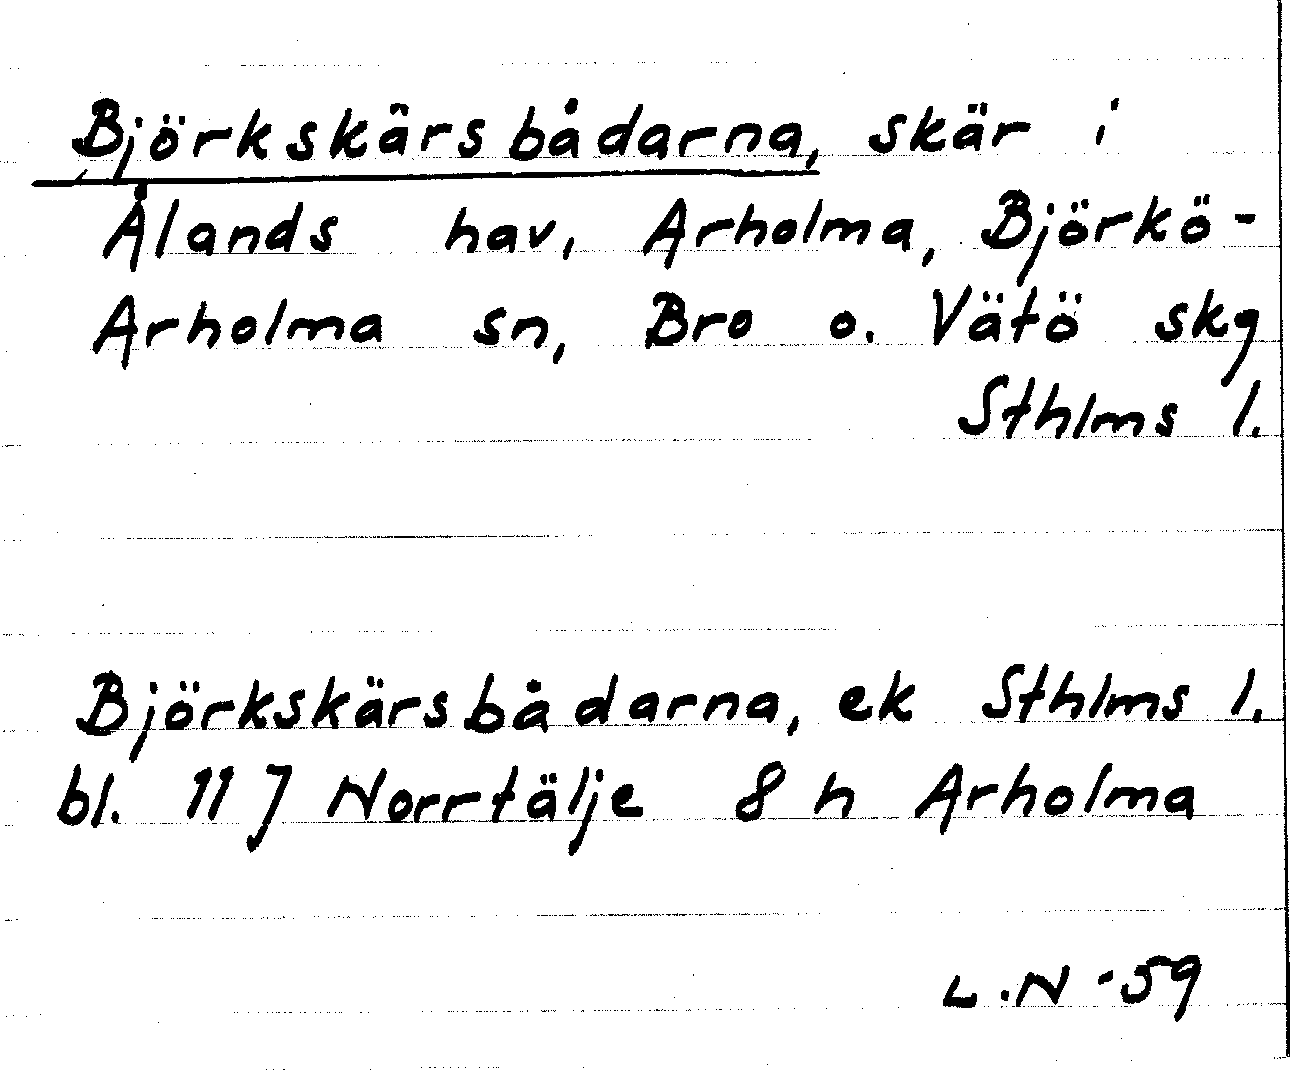 Björkskärsbådarna, skär i
Ålands hav, Arholma, Björkö-
Arholma sn, Bro o. Vätö skg
Sthlms l.
Björkskärsbådarna, ek Sthlms l.
bl. 11 J Norrtälje 8 h Arholma
L.N -59